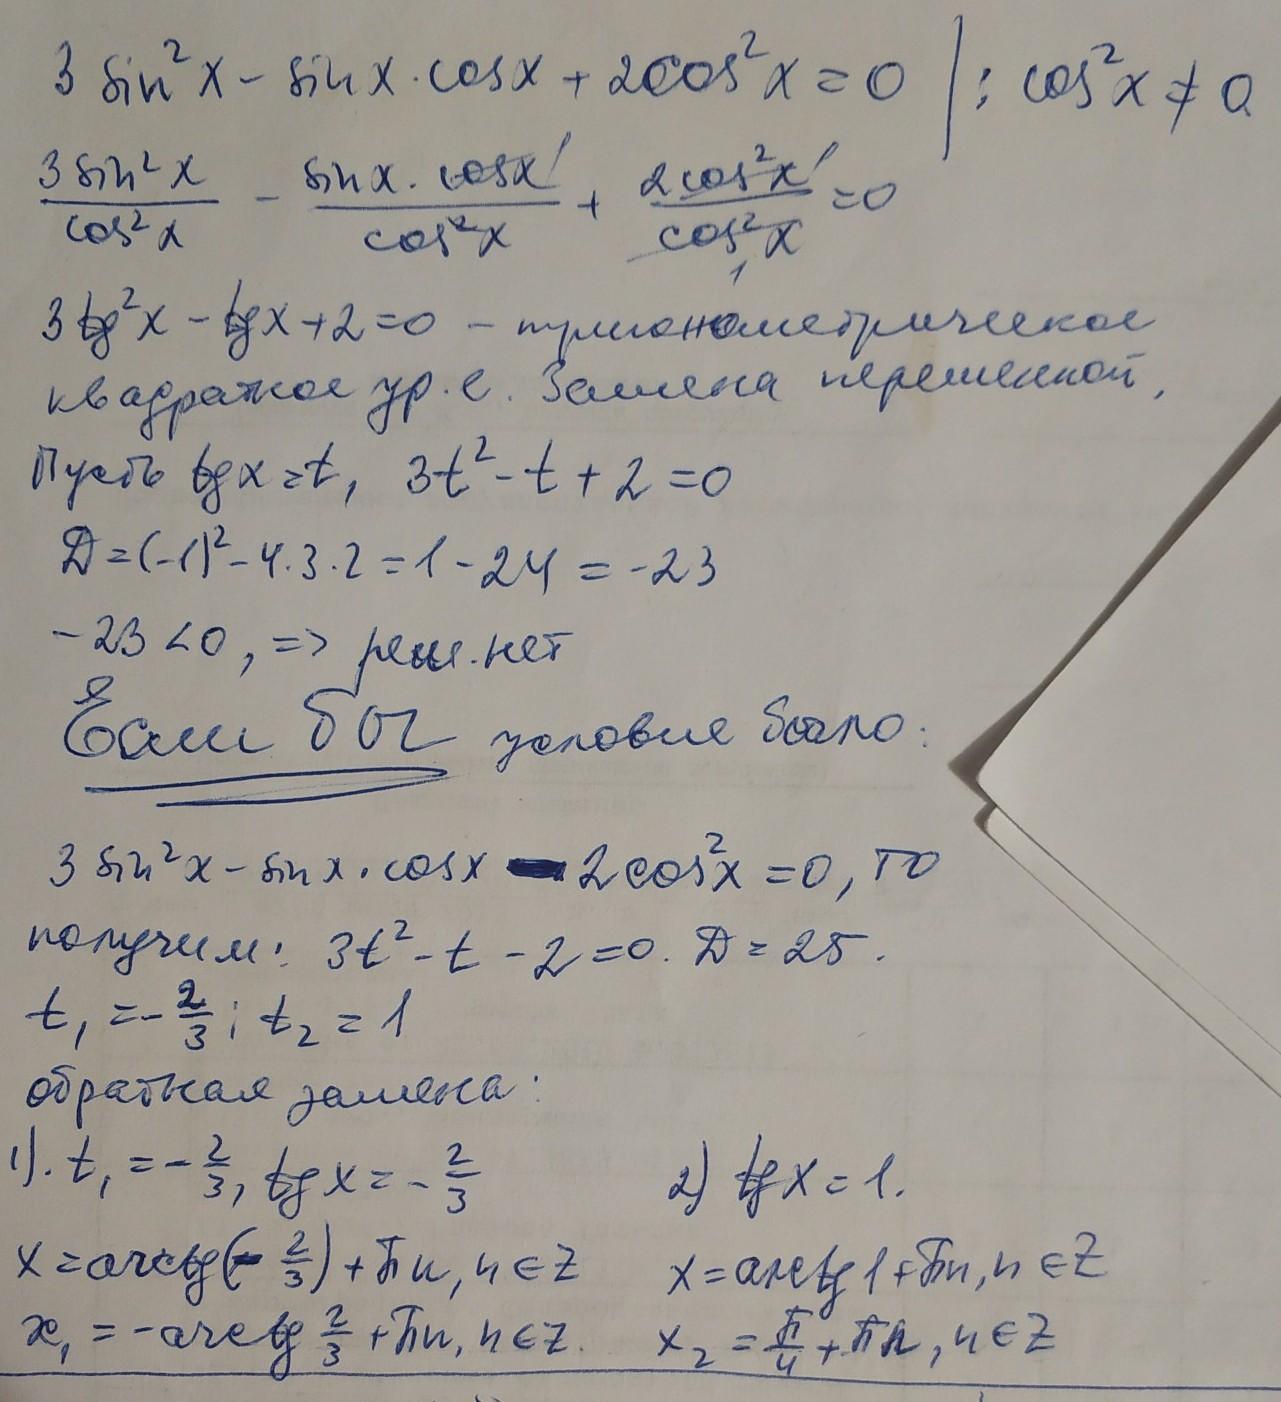 3 sin²x - sinx · cosx + 2cos²x = 0 | : cos²x ≠ 0
3sin²x/cos²x - sinx · cosx/cos²x + 2cos²x/cos²x = 0
3tg²x - tgx + 2 = 0 - тригонометрическое
квадратное ур.е. Замена переменной,
Пусть tgx = t, 3t² - t + 2 = 0
Д = (-1)² - 4·3·2 = 1 - 24 = -23
-23 < 0, => реш. нет
Если бы условие было:
3 sin²x - sinx · cosx - 2cos²x = 0, то
получим: 3t² - t - 2 = 0. Д = 25.
t₁ = -2/3; t₂ = 1
обратная замена:
1). t₁ = -2/3, tgx = -2/3 2) tgx = 1.
x = arctg(-2/3) + πn, n ∈ Z x = arctg1 + πn, n ∈ Z
x₁ = -arctg 2/3 + πn, n ∈ Z. x₂ = π/4 + πn, n ∈ Z